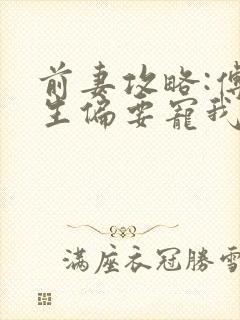 前妻攻略:傅
生偏要寵我
满座衣冠勝雪